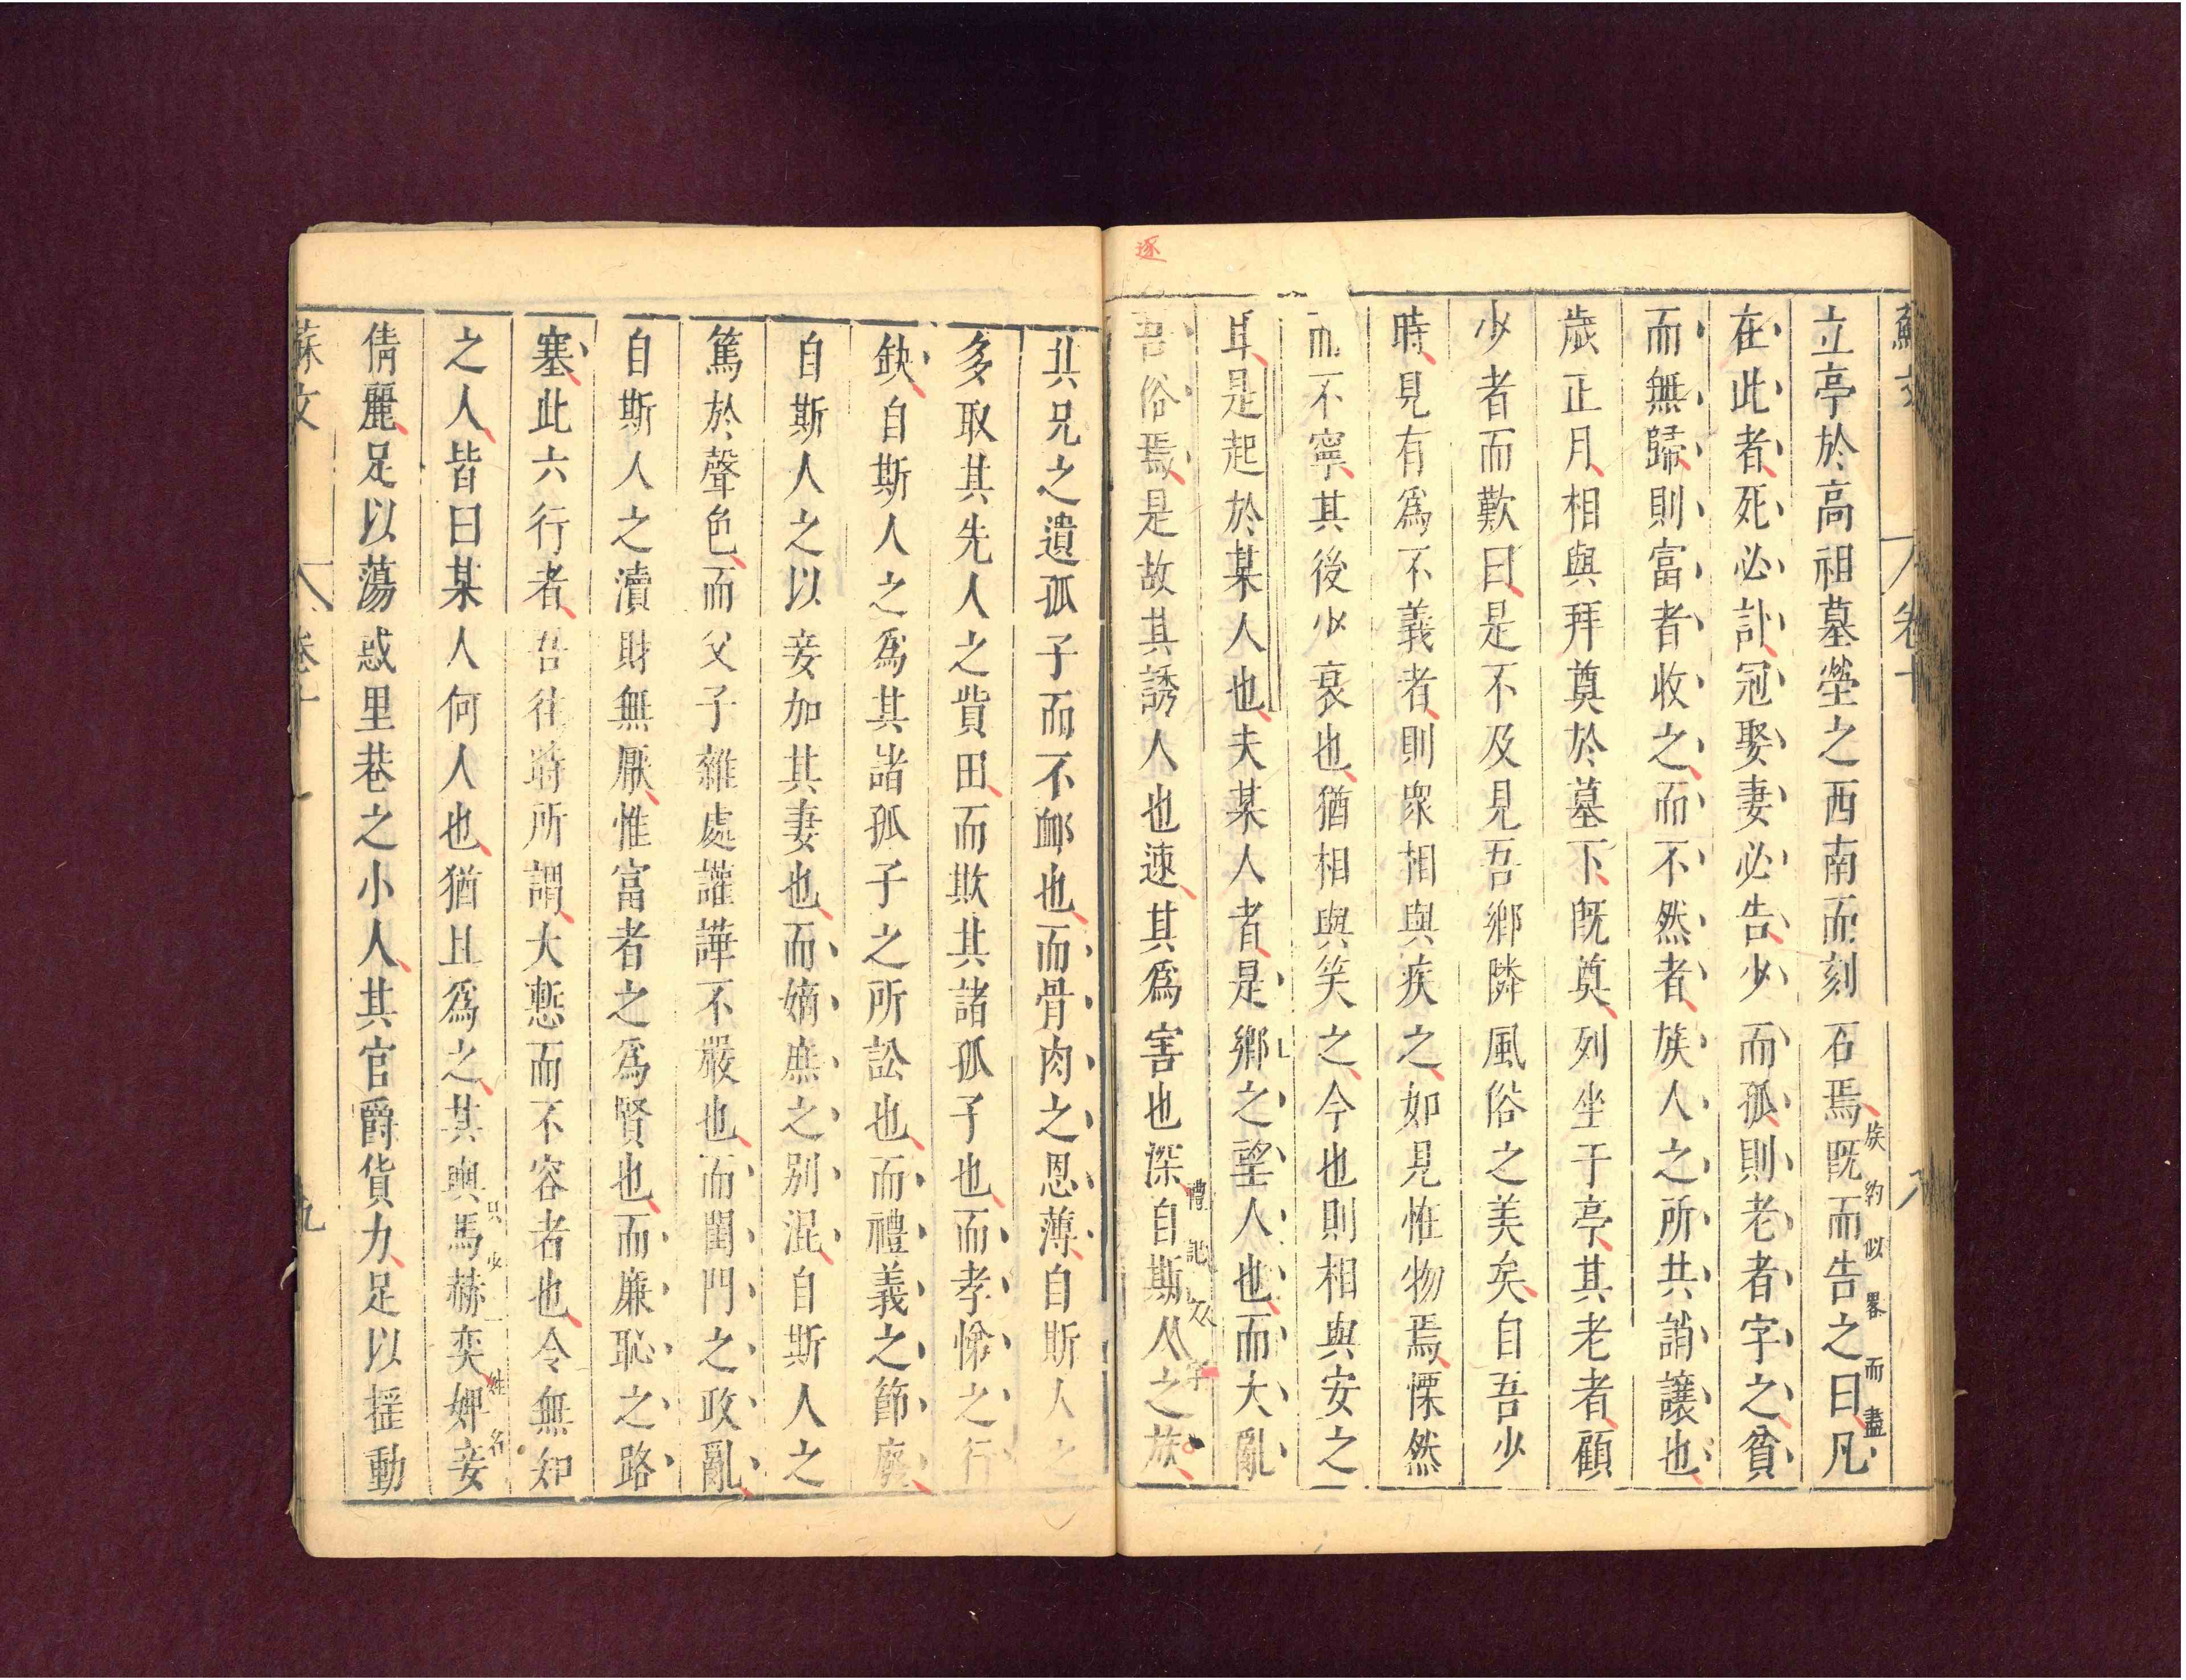 蘇文 卷十 八
立亭於高祖墓塋之西南而刻石焉既而告之曰凡
族約似畧而盡
在此者死必訃冠娶妻必告少而孤則老者字之貧
而無歸則富者收之而不然者族人之所共誚讓也
歲正月相與拜奠於墓下既奠列坐于亭其老者顧
少者而歎曰是不及見吾鄉隣風俗之美矣自吾少
時見有爲不義者則眾相與疾之如見怪物焉慄然
而不寧其後少衰也猶相與笑之今也則相與安之
耳是起於某人也夫某人者是鄉之望人也而大亂
吾俗焉是故其誘人也速其爲害也深自斯人之族
禮記
逐
其兄之遺孤子而不卹也而骨肉之恩薄自斯人之
多取其先人之貲田而欺其諸孤子也而孝悌之行
缺自斯人之爲其諸孤子之所訟也而禮義之節廢
自斯人之以妾加其妻也而嫡庶之別混自斯人之
篤於聲色而父子雜處讙譁不嚴也而閨門之政亂
自斯人之瀆財無厭惟富者之爲賢也而廉恥之路
塞此六行者吾往時所謂大慙而不容者也今無知
之人皆曰某人何人也猶且爲之其輿馬赫奕婢妾
只少一姓名
倩麗足以蕩惑里巷之小人其官爵貨力足以搖動
蘇文 卷十 九